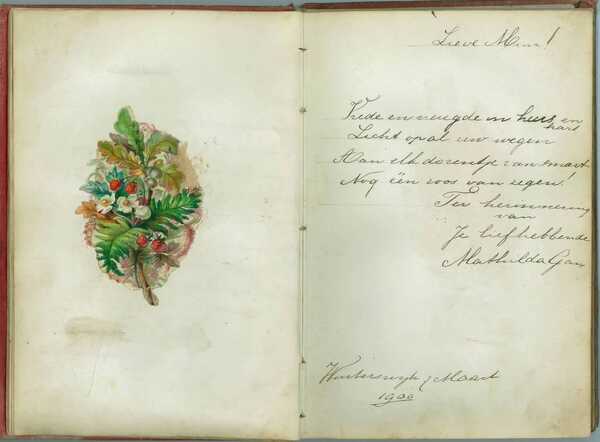 Lieve Mien!
Vrede en vreugde in huis en
hart
Licht op al uw wegen
Aan elk doorentje van smart
Nog één roos van zegen!
Ter herinnering
van
Je liefhebbende
Mathilda Gans
Winterswijk, Maart
1900